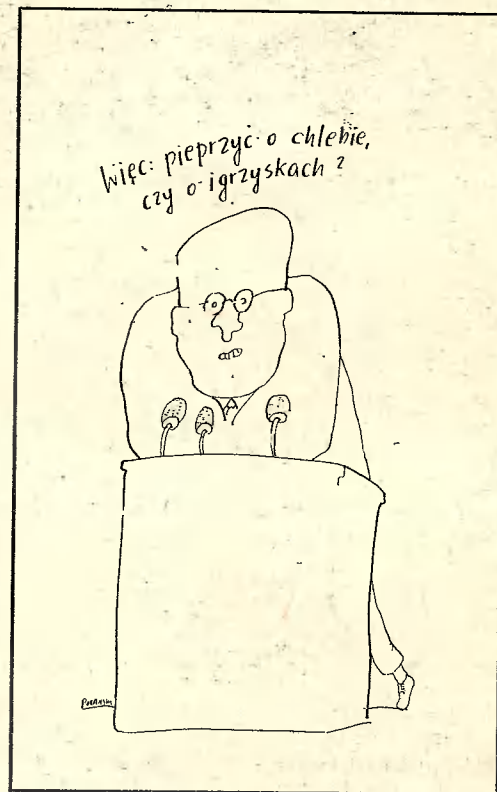 Więc: pieprzyć o chlebie,
czy o igrzyskach?